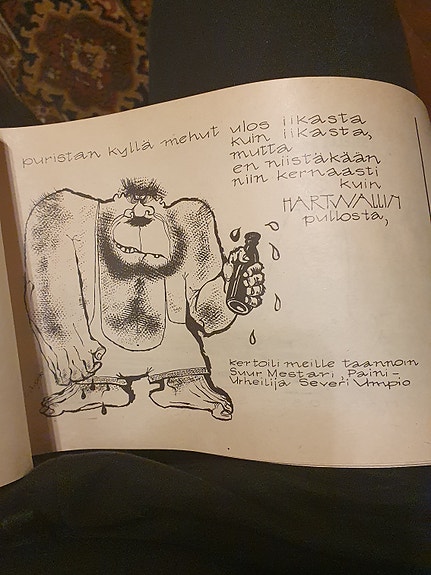 puristan kyllä mehut ulos iikasta
kuin iikasta,
mutta
en niistäkään
niin kernaasti
kuin
HARTWALLIN
pullosta,
kertoili meille taannoin
Suur Mestari, Paini-
Urheilija Severi Umpio